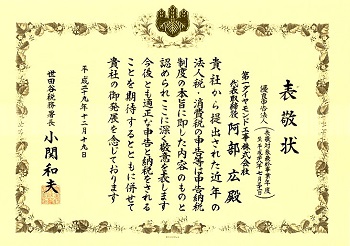 表敬状
優良申告法人
第一ダイヤモンド工事株式会社
代表取締役 阿部 広殿
貴社から提出された近年の
法人税・消費税の申告等は申告納税
制度の本旨に即した内容のものと
認められここに深く敬意を表します
今後とも適正な申告と納税をされる
ことを期待するとともに併せて
貴社の御発展を念じております
平成二十九年十二月十九日
世田谷税務署長 小関和夫